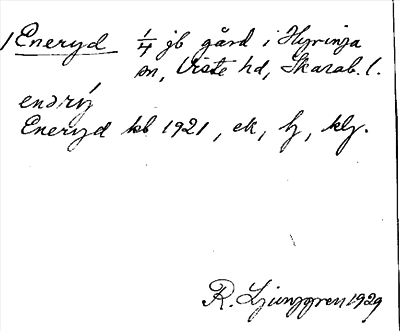 1 Eneryd 1/4 jb gård i Hyringa
sn, Viste hd, Skarab. l.
enərý
Eneryd kb 1921, ek, hj, klj.
R. Ljunggren 1929